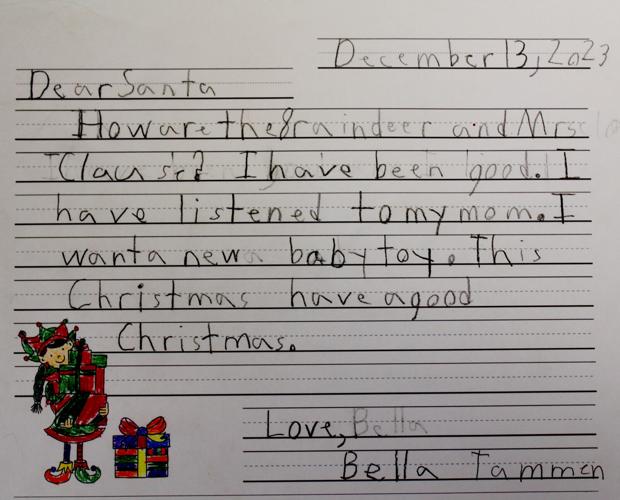 December 13, 2023
Dear Santa
How are the 8 raindeer and Mrs
Claus? I have been good. I
have listened to my mom. I
want a new baby toy. This
Christmas have a good
Christmas.
Love, Bella
Bella Tammen